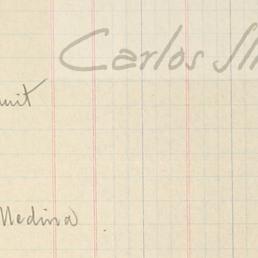 Carlos Sli
uit
Medina